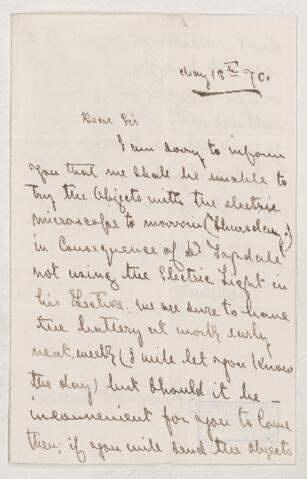 May 18th 70.
Dear Sir
I am sorry to inform
you that we shall be unable to
try the Objects with the electric
microscope to morrow (Thursday)
in Consequence of Dr Tyndale
not using the Electric Light in
his Lecture. we are sure to have
the battery at work early
next week (I will let you know
the day) but should it be
inconvenient for you to Come
then; if you will send the objects